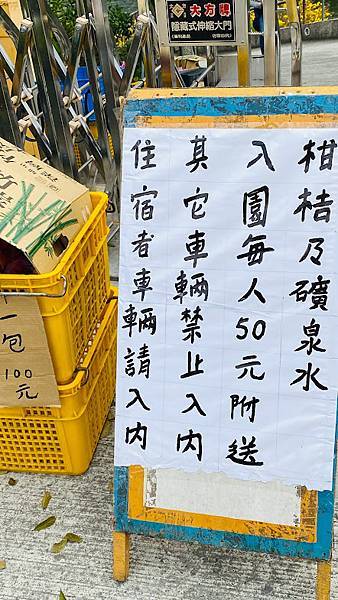 大方牌
隱藏式伸縮大門
住宿者車輛請入內
其它車輛禁止入內
入園每人50元附送
柑桔乃礦泉水
一包
100
元